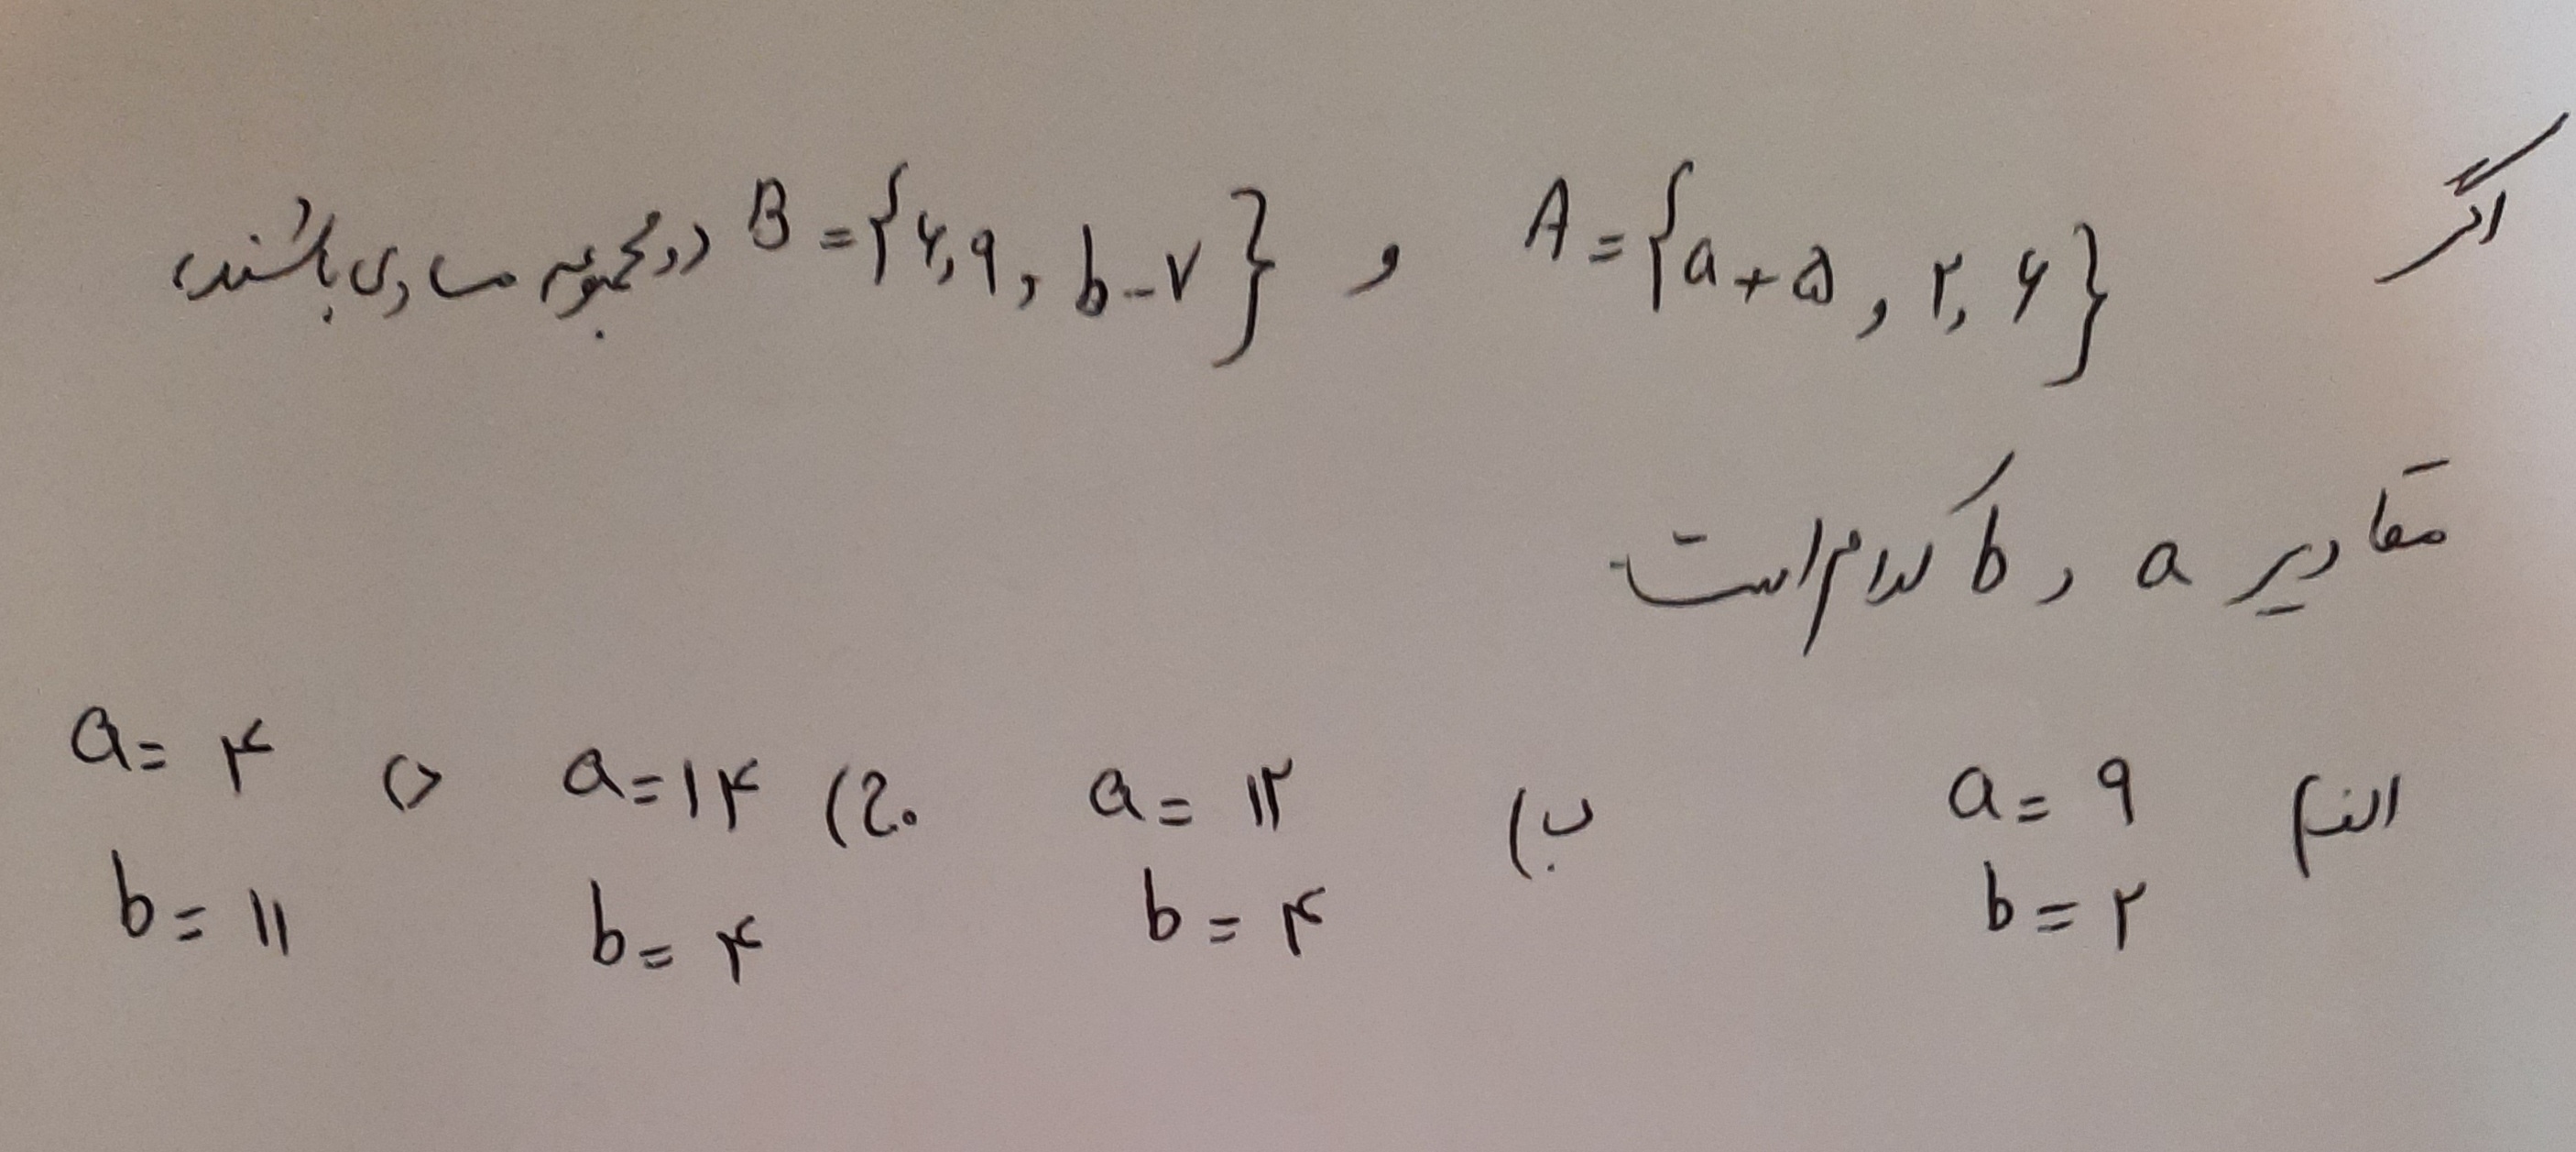 اگر A = {a+۵ , ۲, ۶} و B = {۶,۹, b-۷} دو مجموعه مساوی باشند،
مقادیر a و b کدام است
الف) a = ۹ ب) a = ۱۲ ج) a = ۱۴ د) a = ۴
b = ۲ b = ۴ b = ۴ b = ۱۱